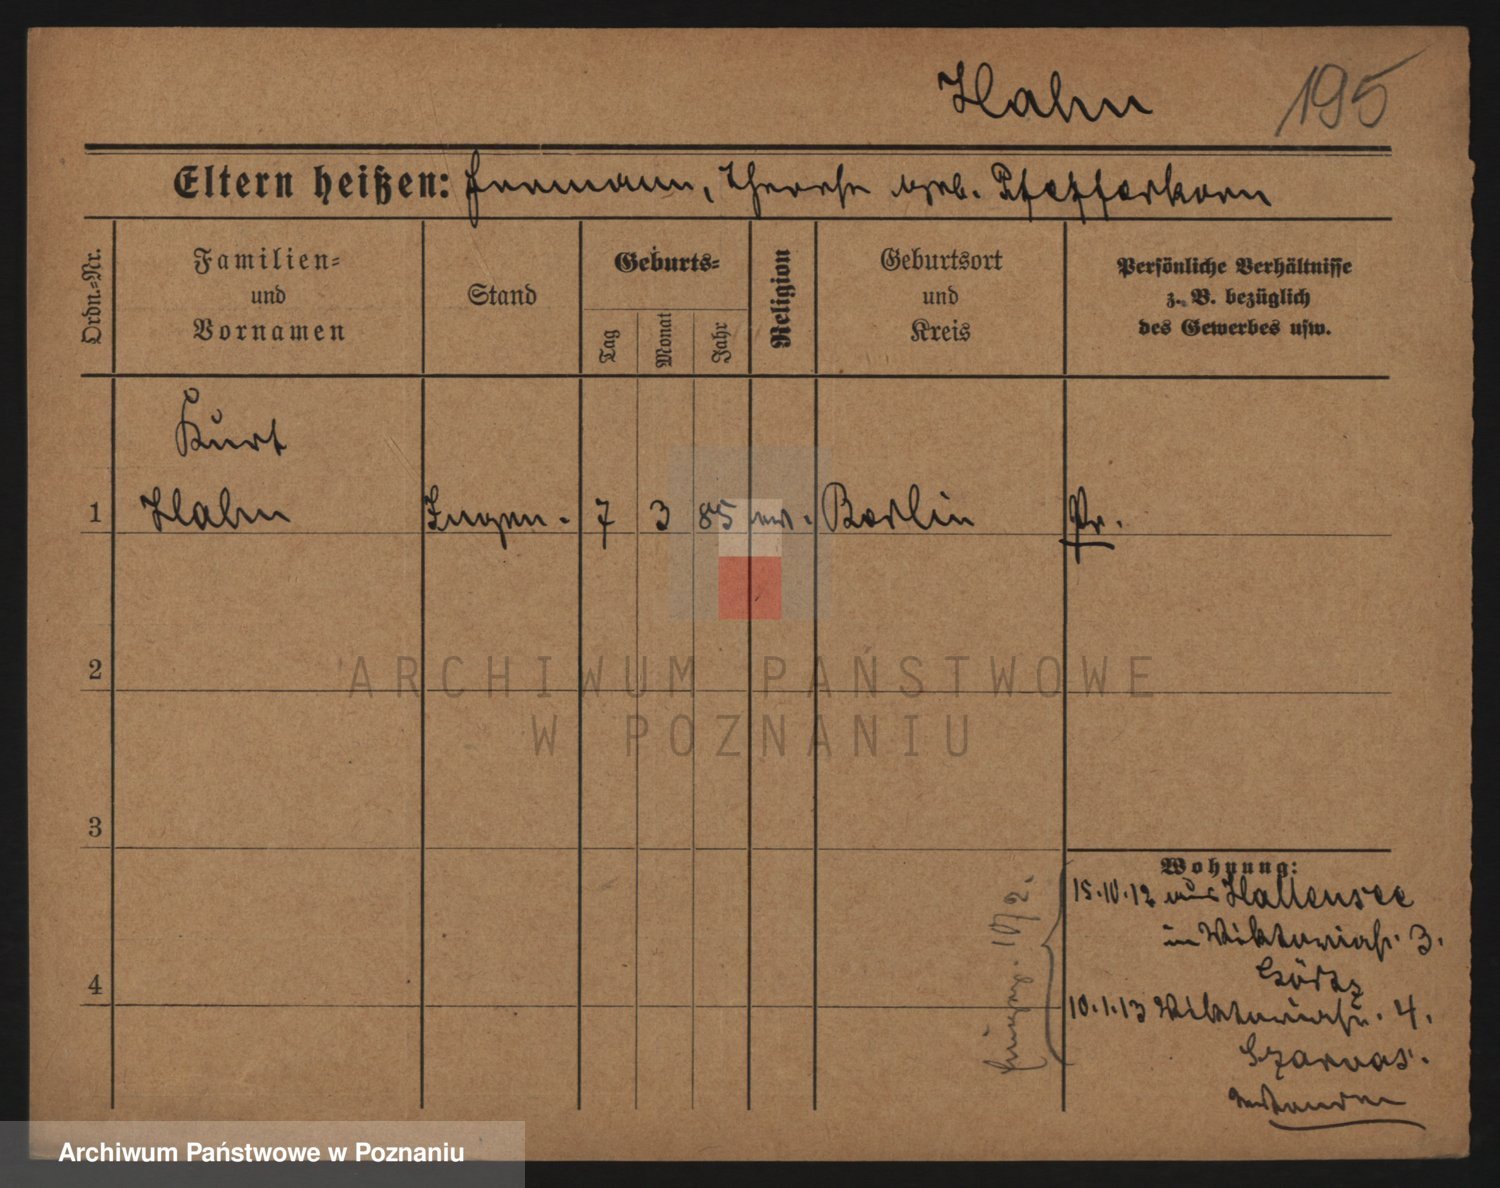 Hahn
195
Eltern heißen: Hermann, Therese geb. Pfefferkorn
Ordn.=Nr.
Familien=
und
Vornamen
Stand
Geburts=
Tag
Monat
Jahr
Religion
Geburtsort
und
Kreis
Persönliche Verhältnisse
z. B. bezüglich
des Gewerbes usw.
Kurt
1 Hahn Ingen. 7 3 85 ev. Berlin Pr.
2
ARCHIWUM PAŃSTWOWE
W POZNANIU
3
4
Wohnung:
15.10.12 aus Hallensee
in Viktoriastr. 3.
10.1.13 Viktoriastr. 4.
Archiwum Państwowe w Poznaniu